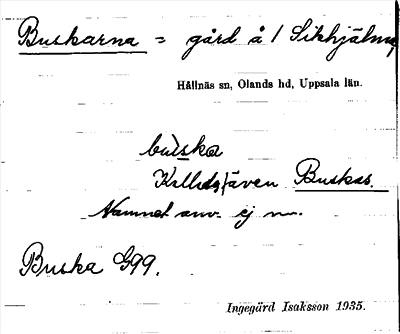 Buskarna = gård å 1 Sikhjälma
Hållnäs sn, Olands hd, Uppsala län.
buska
Kallas även Buskas.
Namnet anv. ej nu.
Buska G99.
Ingegärd Isaksson 1935.